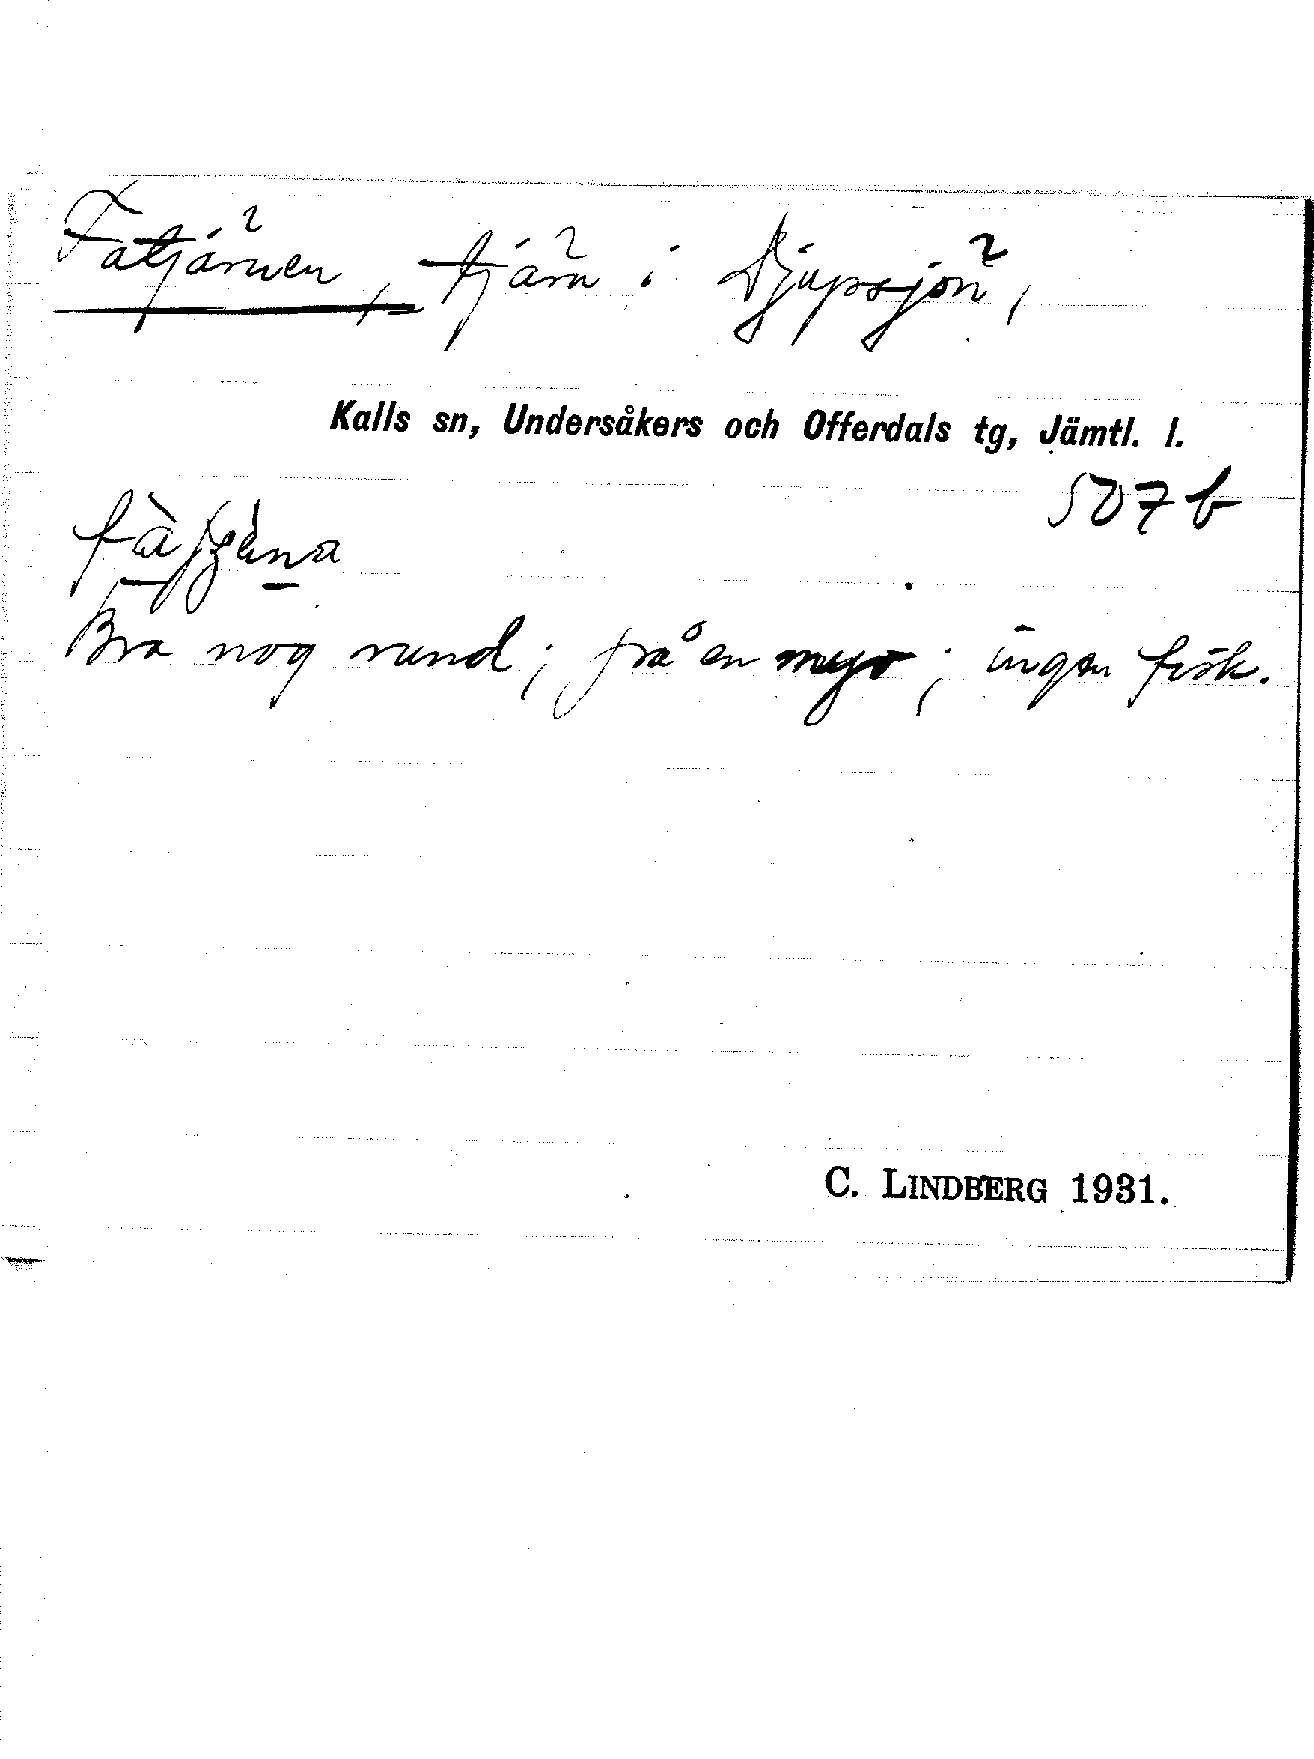 Fatjärnen, tjärn i Djupsjön,
Kalls sn, Undersåkers och Offerdals tg, Jämtl. l.
507 b
Bra nog rund; från en myr; ingen fisk.
C. LINDBERG 1931.